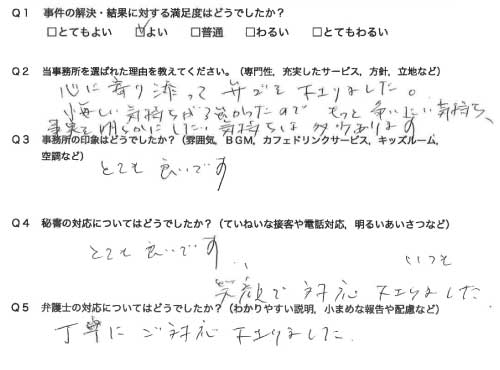 Q1 事件の解決・結果に対する満足度はどうでしたか？
□とてもよい ☑よい □普通 □わるい □とてもわるい
Q2 当事務所を選ばれた理由を教えてください。（専門性，充実したサービス，方針，立地など）
心に寄り添って 下さりました。
悔しい気持ちが 強かったので もっと 争いたい 気持ち、
事実を 明らかにしたい 気持ちは 多少あります
Q3 事務所の印象はどうでしたか？（雰囲気，BGM，カフェドリンクサービス，キッズルーム，
空調など）
とても 良いです
Q4 秘書の対応についてはどうでしたか？（ていねいな接客や電話対応，明るいあいさつなど）
とても 良いです
いつも
笑顔で 対応 下さりました
Q5 弁護士の対応についてはどうでしたか？（わかりやすい説明，小まめな報告や配慮など）
丁寧に ご対応 下さりました.